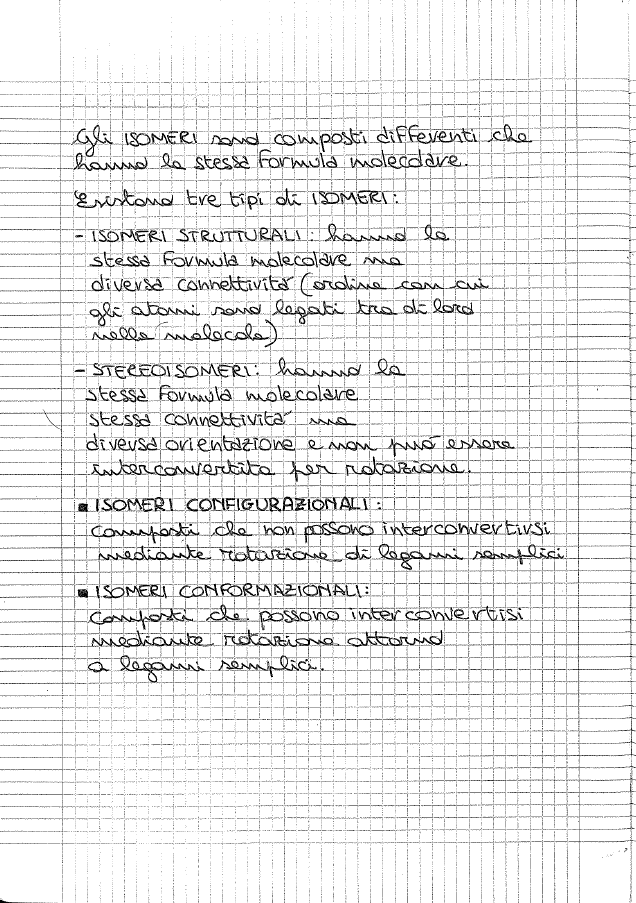 Gli ISOMERI sono composti differenti che
hanno la stessa formula molecolare.
Esistono tre tipi di ISOMERI:
- ISOMERI STRUTTURALI: hanno la
stessa formula molecolare ma
diversa connettività (ordine con cui
gli atomi sono legati tra di loro
nella molecola)
- STEREOISOMERI: hanno la
stessa formula molecolare
stessa connettività ma
diversa orientazione e non può essere
interconvertita per rotazione.
▪ ISOMERI CONFIGURAZIONALI:
composti che non possono interconvertirsi
mediante rotazione di legami semplici
▪ ISOMERI CONFORMAZIONALI:
composti che possono interconvertisi
mediante rotazione attorno
a legami semplici.